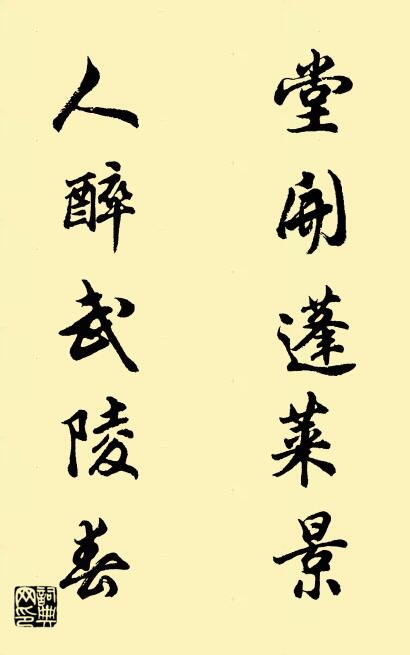 堂開蓬萊景
人醉武陵春
詞典网印